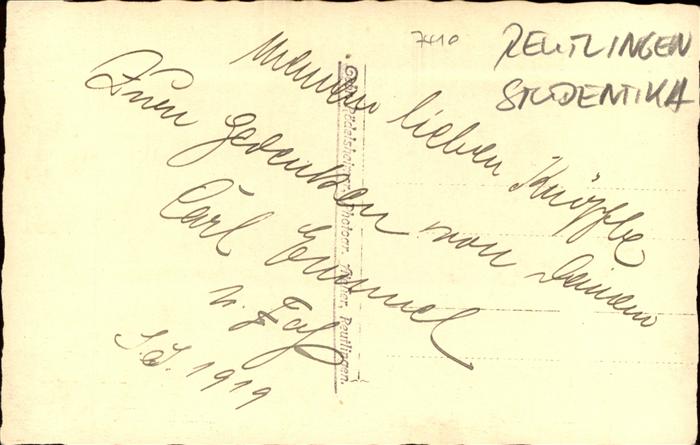 7410
REUTLINGEN
STUDENTIKA
Meinem lieben Knöpfle
Zum Gedenken von Deinem
Carl
S.S. 1919
Photogr. Atelier, Reutlingen.